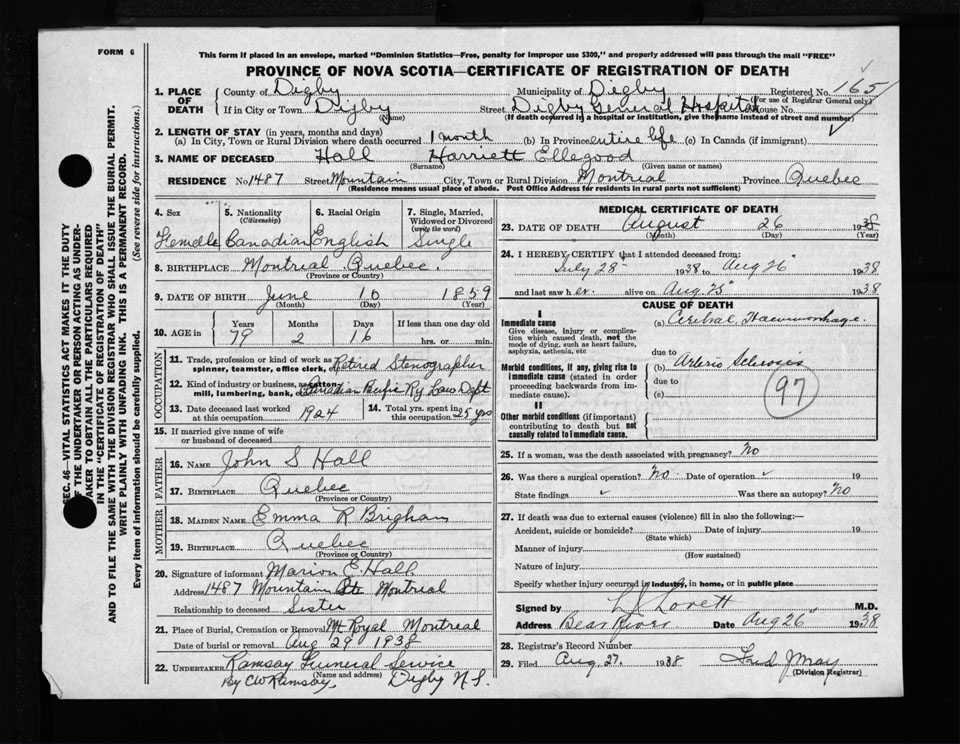 FORM 6
This form if placed in an envelope, marked "Dominion Statistics—Free, penalty for improper use $300," and properly addressed will pass through the mail "FREE"
PROVINCE OF NOVA SCOTIA—CERTIFICATE OF REGISTRATION OF DEATH
SEC. 46—VITAL STATISTICS ACT MAKES IT THE DUTY
OF THE UNDERTAKER OR PERSON ACTING AS UNDER-
TAKER TO OBTAIN ALL THE PARTICULARS REQUIRED
IN THE "CERTIFICATE OF REGISTRATION OF DEATH"
AND TO FILE THE SAME WITH THE DIVISION REGISTRAR WHO SHALL ISSUE THE BURIAL PERMIT.
WRITE PLAINLY WITH UNFADING INK. THIS IS A PERMANENT RECORD.
Every item of information should be carefully supplied. (See reverse side for instructions.)
1. PLACE OF DEATH
County of Digby Municipality of Digby Registered No. 165
(For use of Registrar General only)
If in City or Town Digby Street Digby General Hospital House No.
(Name) (If death occurred in a hospital or institution, give the name instead of street and number)
2. LENGTH OF STAY (in years, months and days)
(a) In City, Town or Rural Division where death occurred 1 month (b) In Province entire life (c) In Canada (if immigrant)
3. NAME OF DECEASED Hall Harriett Ellegood
(Surname) (Given name or names)
RESIDENCE No 1487 Street Mountain City, Town or Rural Division Montreal Province Quebec
(Residence means usual place of abode. Post Office Address for residents in rural parts not sufficient)
4. Sex 5. Nationality (Citizenship) 6. Racial Origin 7. Single, Married, Widowed or Divorced (write the word)
Female Canadian English Single
8. BIRTHPLACE Montreal Quebec.
(Province or Country)
9. DATE OF BIRTH June 10 1859
(Month) (Day) (Year)
10. AGE in Years Months Days If less than one day old
79 2 16 hrs. or min.
OCCUPATION
11. Trade, profession or kind of work as spinner, teamster, office clerk, Retired Stenographer
12. Kind of industry or business, as cotton mill, lumbering, bank, Canadian Pacific Ry Law Dept
13. Date deceased last worked at this occupation 1924 14. Total yrs. spent in this occupation 25 yrs
15. If married give name of wife
or husband of deceased
FATHER
16. NAME John S Hall
17. BIRTHPLACE Quebec
(Province or Country)
MOTHER
18. MAIDEN NAME Emma R Brigham
19. BIRTHPLACE Quebec
(Province or Country)
20. Signature of informant Marion E. Hall
Address 1487 Mountain Montreal
Relationship to deceased Sister
21. Place of Burial, Cremation or Removal Mt Royal Montreal
Date of burial or removal Aug 29 1938
22. UNDERTAKER Ramsay Funeral Service
(Name and address)
By CW Ramsay Digby N S.
MEDICAL CERTIFICATE OF DEATH
23. DATE OF DEATH August 26 1938
(Month) (Day) (Year)
24. I HEREBY CERTIFY that I attended deceased from:
July 28 1938 to Aug 26 1938
and last saw her. alive on Aug 25 1938
CAUSE OF DEATH
I
Immediate cause (a) Ceribral Haemmorhage.
Give disease, injury or complica-
tion which caused death, not the
mode of dying, such as heart failure,
asphyxia, asthenia, etc due to
Morbid conditions, if any, giving rise to (b) Arterio Sclerosis
immediate cause (stated in order due to
proceeding backwards from im- (c)
mediate cause).
97
II
Other morbid conditions (if important)
contributing to death but not
causally related to immediate cause.
25. If a woman, was the death associated with pregnancy? no
26. Was there a surgical operation? no Date of operation 19
State findings Was there an autopsy? no
27. If death was due to external causes (violence) fill in also the following:—
Accident, suicide or homicide? Date of injury 19
(State which)
Manner of injury
(How sustained)
Nature of injury
Specify whether injury occurred in industry, in home, or in public place
Signed by L J Lovett M.D.
Address Bear River Date Aug 26 1938
28. Registrar's Record Number
29. Filed Aug 27. 1938 Fred J May
(Division Registrar)